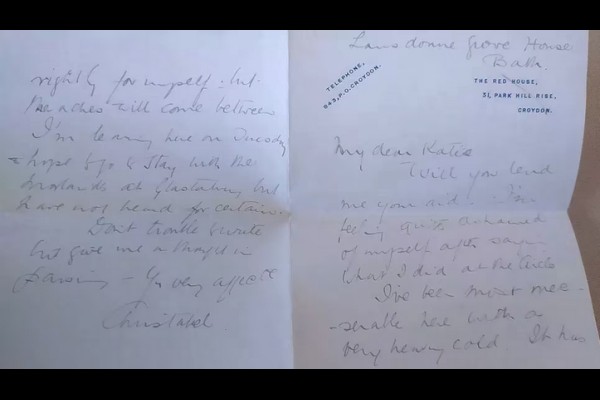 Lansdowne Grove House
Bath.
TELEPHONE,
P.O. CROYDON.
THE RED HOUSE,
51, PARK HILL RISE,
CROYDON.
My dear Katie
Will you lend
me your aid. I'm
feeling quite ashamed
of myself after saying
what I did at the Circle
I've been most mise-
-rable here with a
very heavy cold It has
rightly for myself - but
the aches will come between
I'm leaving here on Tuesday
& hope to go & stay with the
at Glastonbury but
have not heard for certain.
Don't trouble to write
but give me a thought in
passing - Yr very affec